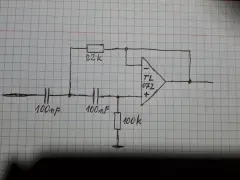 22k
TL
072
100nF
100nF
100k